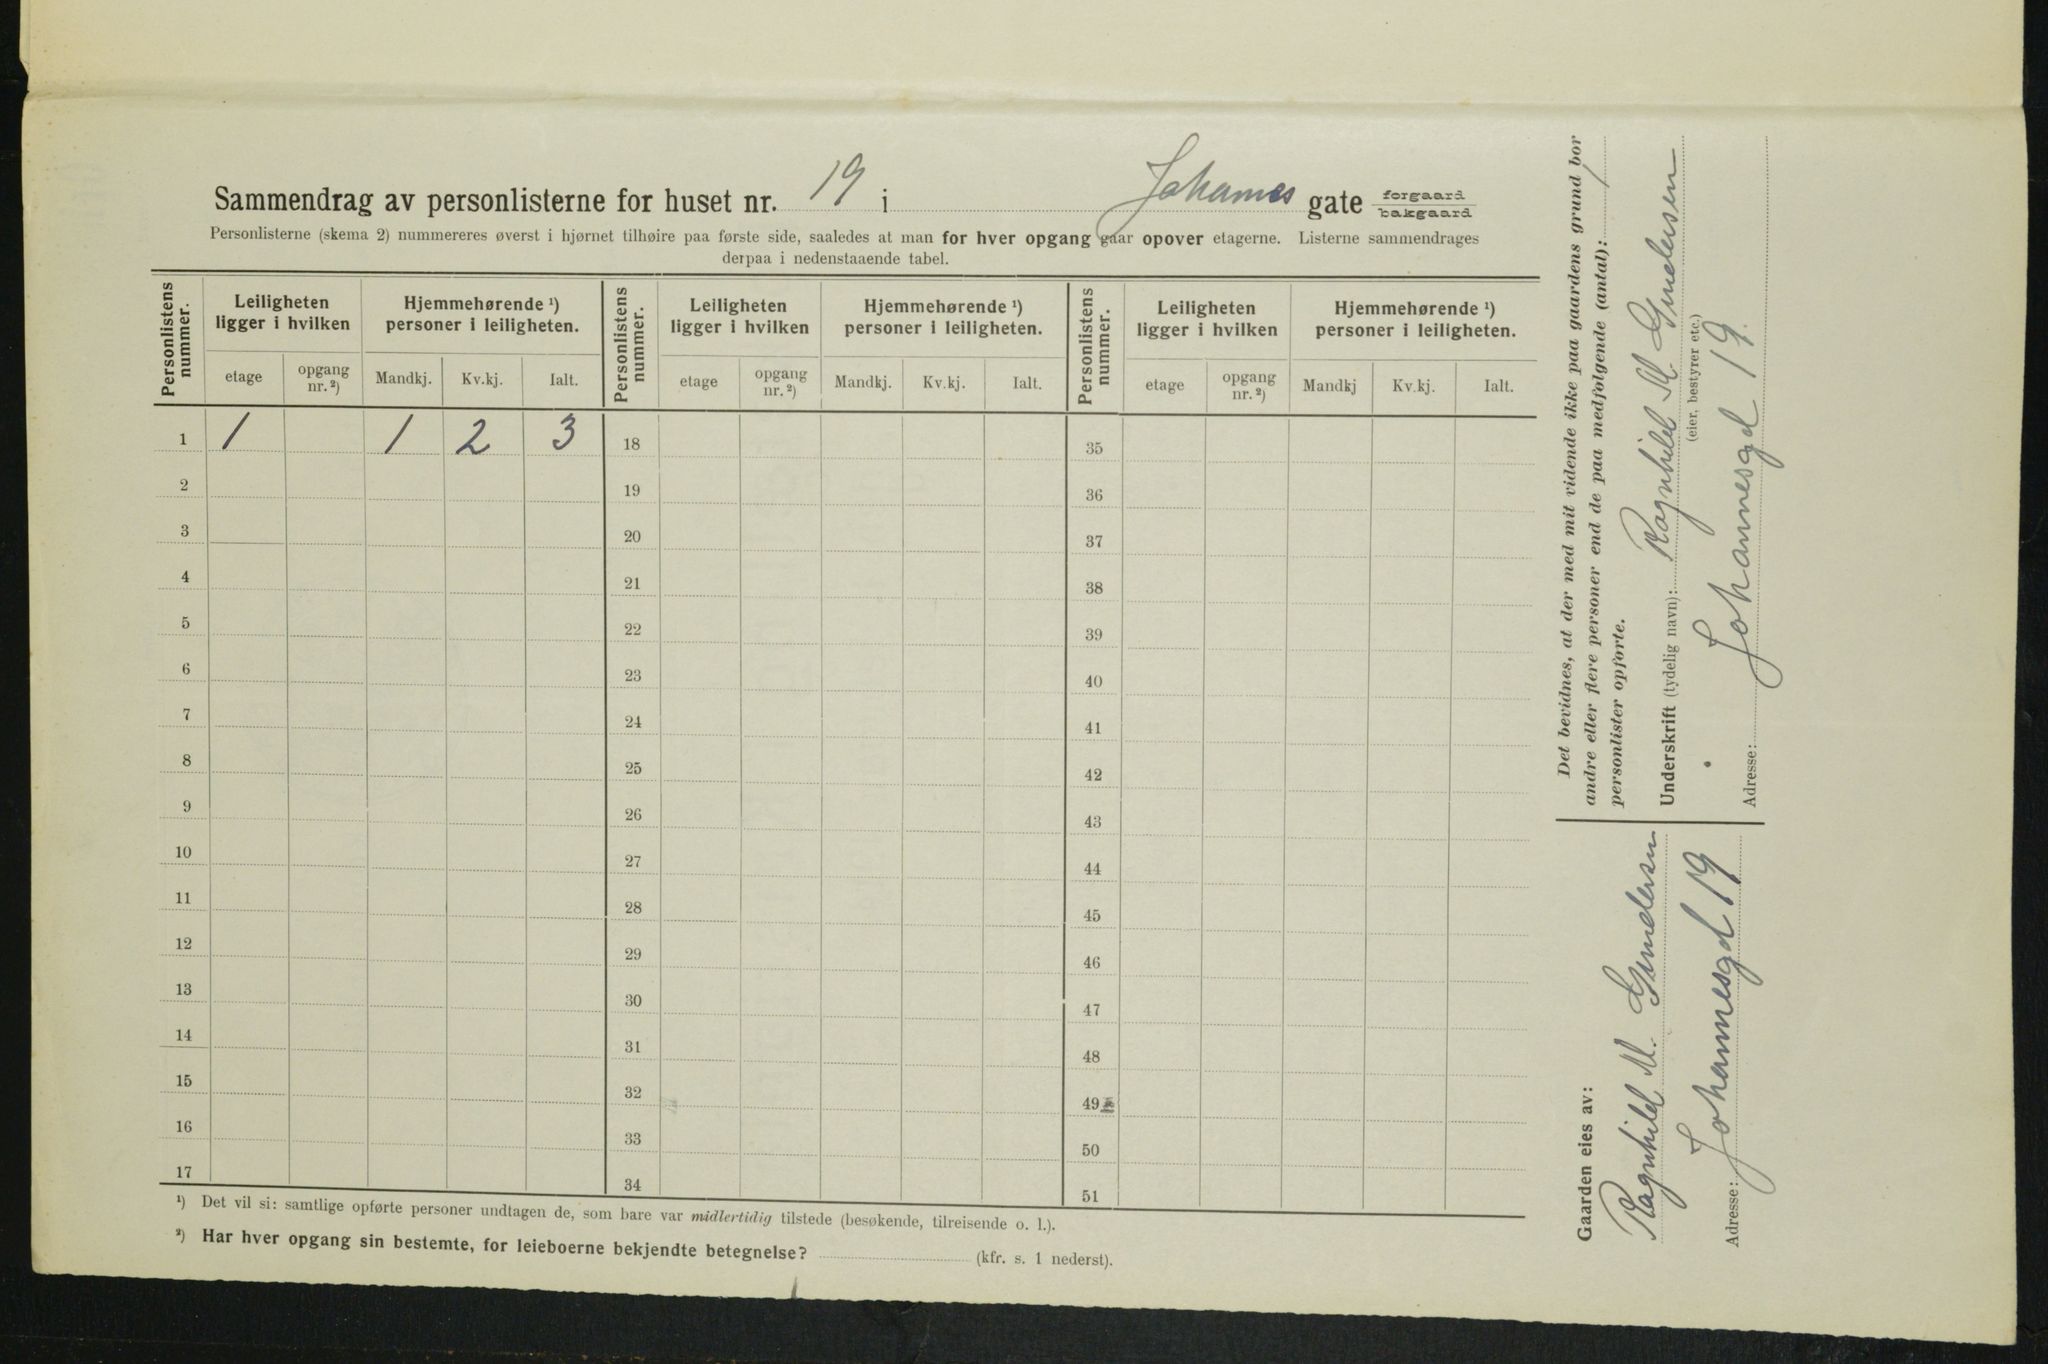 Sammendrag av personlisterne for huset nr. 19 i Johannes gate forgaard
bakgaard
Personlisterne (skema 2) nummereres øverst i hjørnet tilhøire paa første side, saaledes at man for hver opgang gaar opover etagerne. Listerne sammendrages
derpaa i nedenstaaende tabel.
Personlistens nummer. Leiligheten ligger i hvilken Hjemmehørende ¹) personer i leiligheten. Personlistens nummer. Leiligheten ligger i hvilken Hjemmehørende ¹) personer i leiligheten. Personlistens nummer. Leiligheten ligger i hvilken Hjemmehørende ¹) personer i leiligheten.
etage opgang nr. ²) Mandkj. Kv.kj. Ialt. etage opgang nr. ²) Mandkj. Kv.kj. Ialt. etage opgang nr. ²) Mandkj Kv.kj. Ialt.
1 1 1 2 3 18 35
2 19 36
3 20 37
4 21 38
5 22 39
6 23 40
7 24 41
8 25 42
9 26 43
10 27 44
11 28 45
12 29 46
13 30 47
14 31 48
15 32 49
16 33 50
17 34 51
¹) Det vil si: samtlige opførte personer undtagen de, som bare var midlertidig tilstede (besøkende, tilreisende o. l.).
²) Har hver opgang sin bestemte, for leieboerne bekjendte betegnelse? (kfr. s. 1 nederst).
Det bevidnes, at der med mit vidende ikke paa gaardens grund bor
andre eller flere personer end de paa medfølgende (antal): 1
personlister opførte.
Underskrift (tydelig navn): Ragnhild M Gundersen
(eier, bestyrer etc.)
Adresse: Johannesgd 19.
Gaarden eies av:
Ragnhild M. Gundersen
Adresse: Johannesgd 19